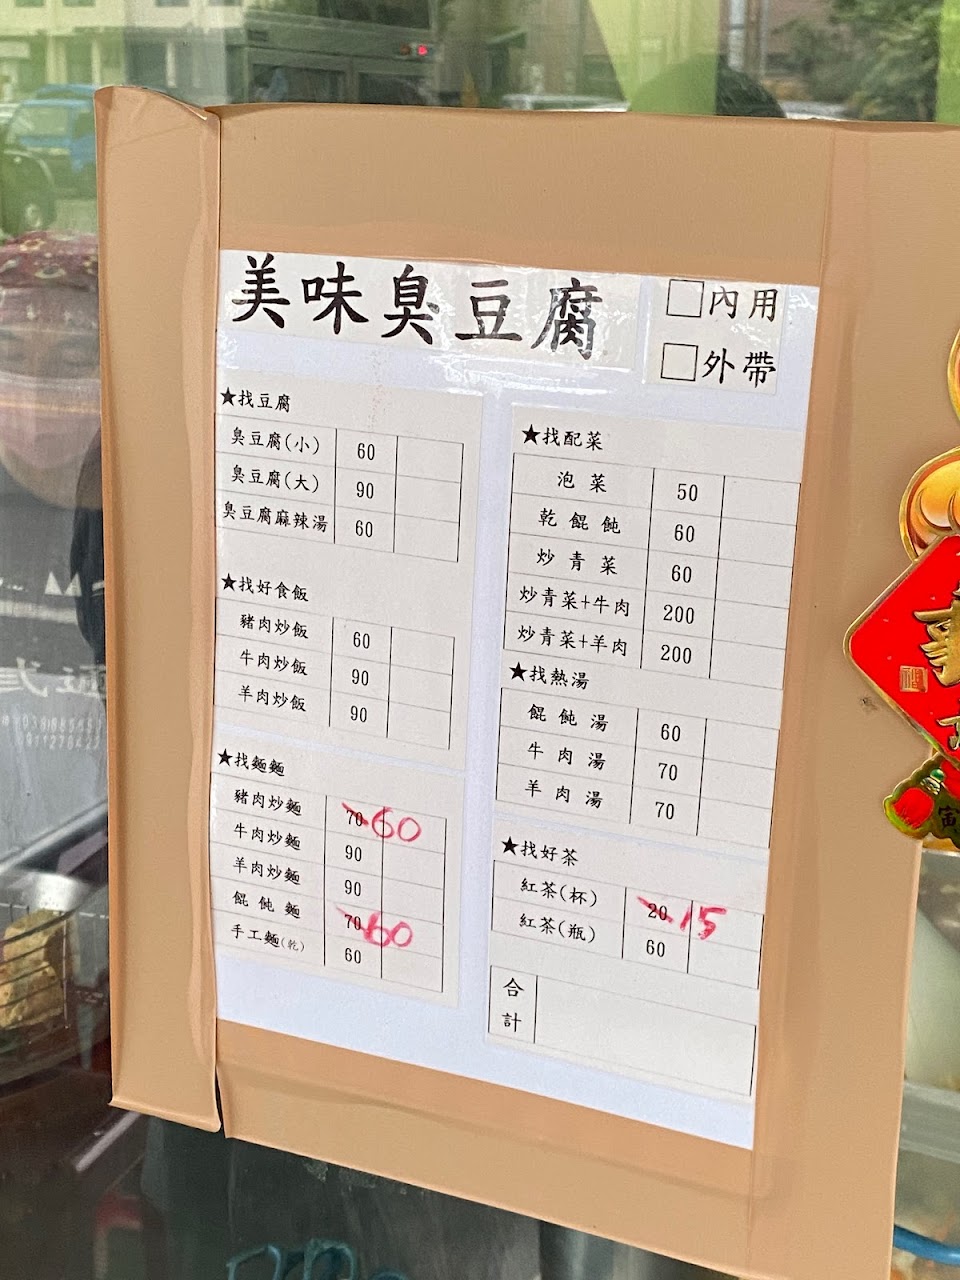 美味臭豆腐
□內用
□外帶
★找豆腐
臭豆腐(小) 60
臭豆腐(大) 90
臭豆腐麻辣湯 60
★找好食飯
豬肉炒飯 60
牛肉炒飯 90
羊肉炒飯 90
★找麵麵
豬肉炒麵 70 60
牛肉炒麵 90
羊肉炒麵 90
餛飩麵 70 60
手工麵(乾) 60
★找配菜
泡菜 50
乾餛飩 60
炒青菜 60
炒青菜+牛肉 200
炒青菜+羊肉 200
★找熱湯
餛飩湯 60
牛肉湯 70
羊肉湯 70
★找好茶
紅茶(杯) 20 15
紅茶(瓶) 60
合計